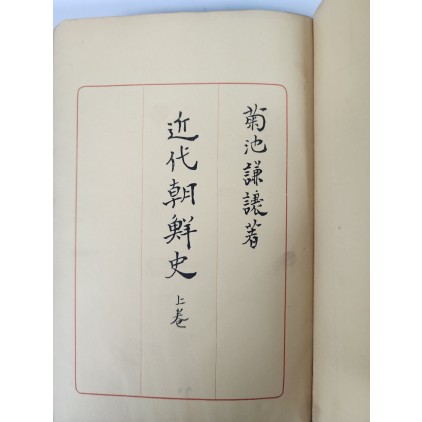 菊池謙讓著
近代朝鮮史
上巻